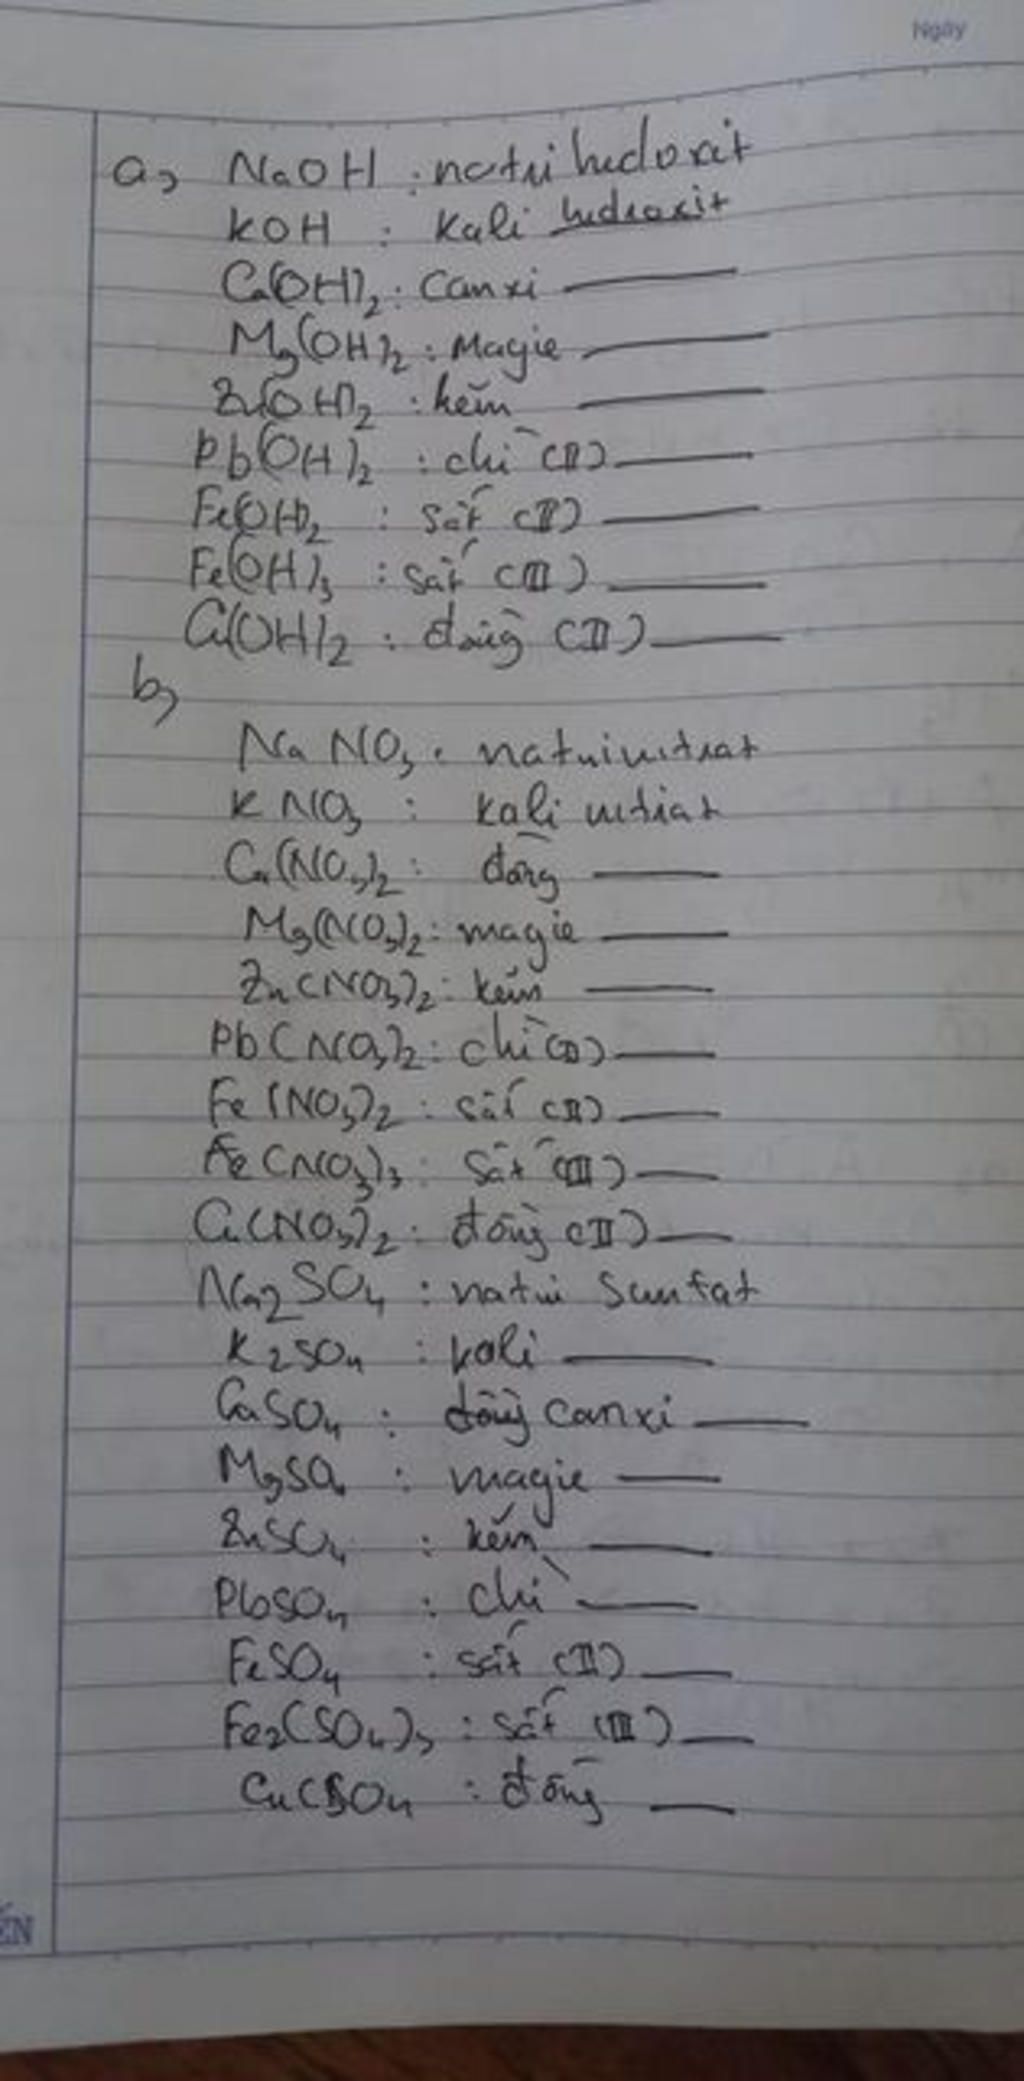 Ngày
a, NaOH : natri hidoxit
KOH : Kali hidroxit
Ca(OH)₂ : Canxi ———
Mg(OH)₂ : Magie ———
Zn(OH)₂ : kẽm ———
Pb(OH)₂ : chì (II) ———
Fe(OH)₂ : Sắt (II) ———
Fe(OH)₃ : Sắt (III) ———
Cu(OH)₂ : đồng (II) ———
b,
NaNO₃ : natri nitrat
KNO₃ : kali nitrat
Ca(NO₃)₂ : đồng ———
Mg(NO₃)₂ : magie ———
Zn(NO₃)₂ : kẽm ———
Pb(NO₃)₂ : chì (II) ———
Fe(NO₃)₂ : sắt (II) ———
Fe(NO₃)₃ : Sắt (III) ———
Cu(NO₃)₂ : đồng (II) ———
Na₂SO₄ : natri Sunfat
K₂SO₄ : kali ———
CaSO₄ : đồng canxi ———
MgSO₄ : magie ———
ZnSO₄ : kẽm ———
PbSO₄ : chì ———
FeSO₄ : sắt (II) ———
Fe₂(SO₄)₃ : sắt (III) ———
Cu(SO₄ : đồng ———
ẾN